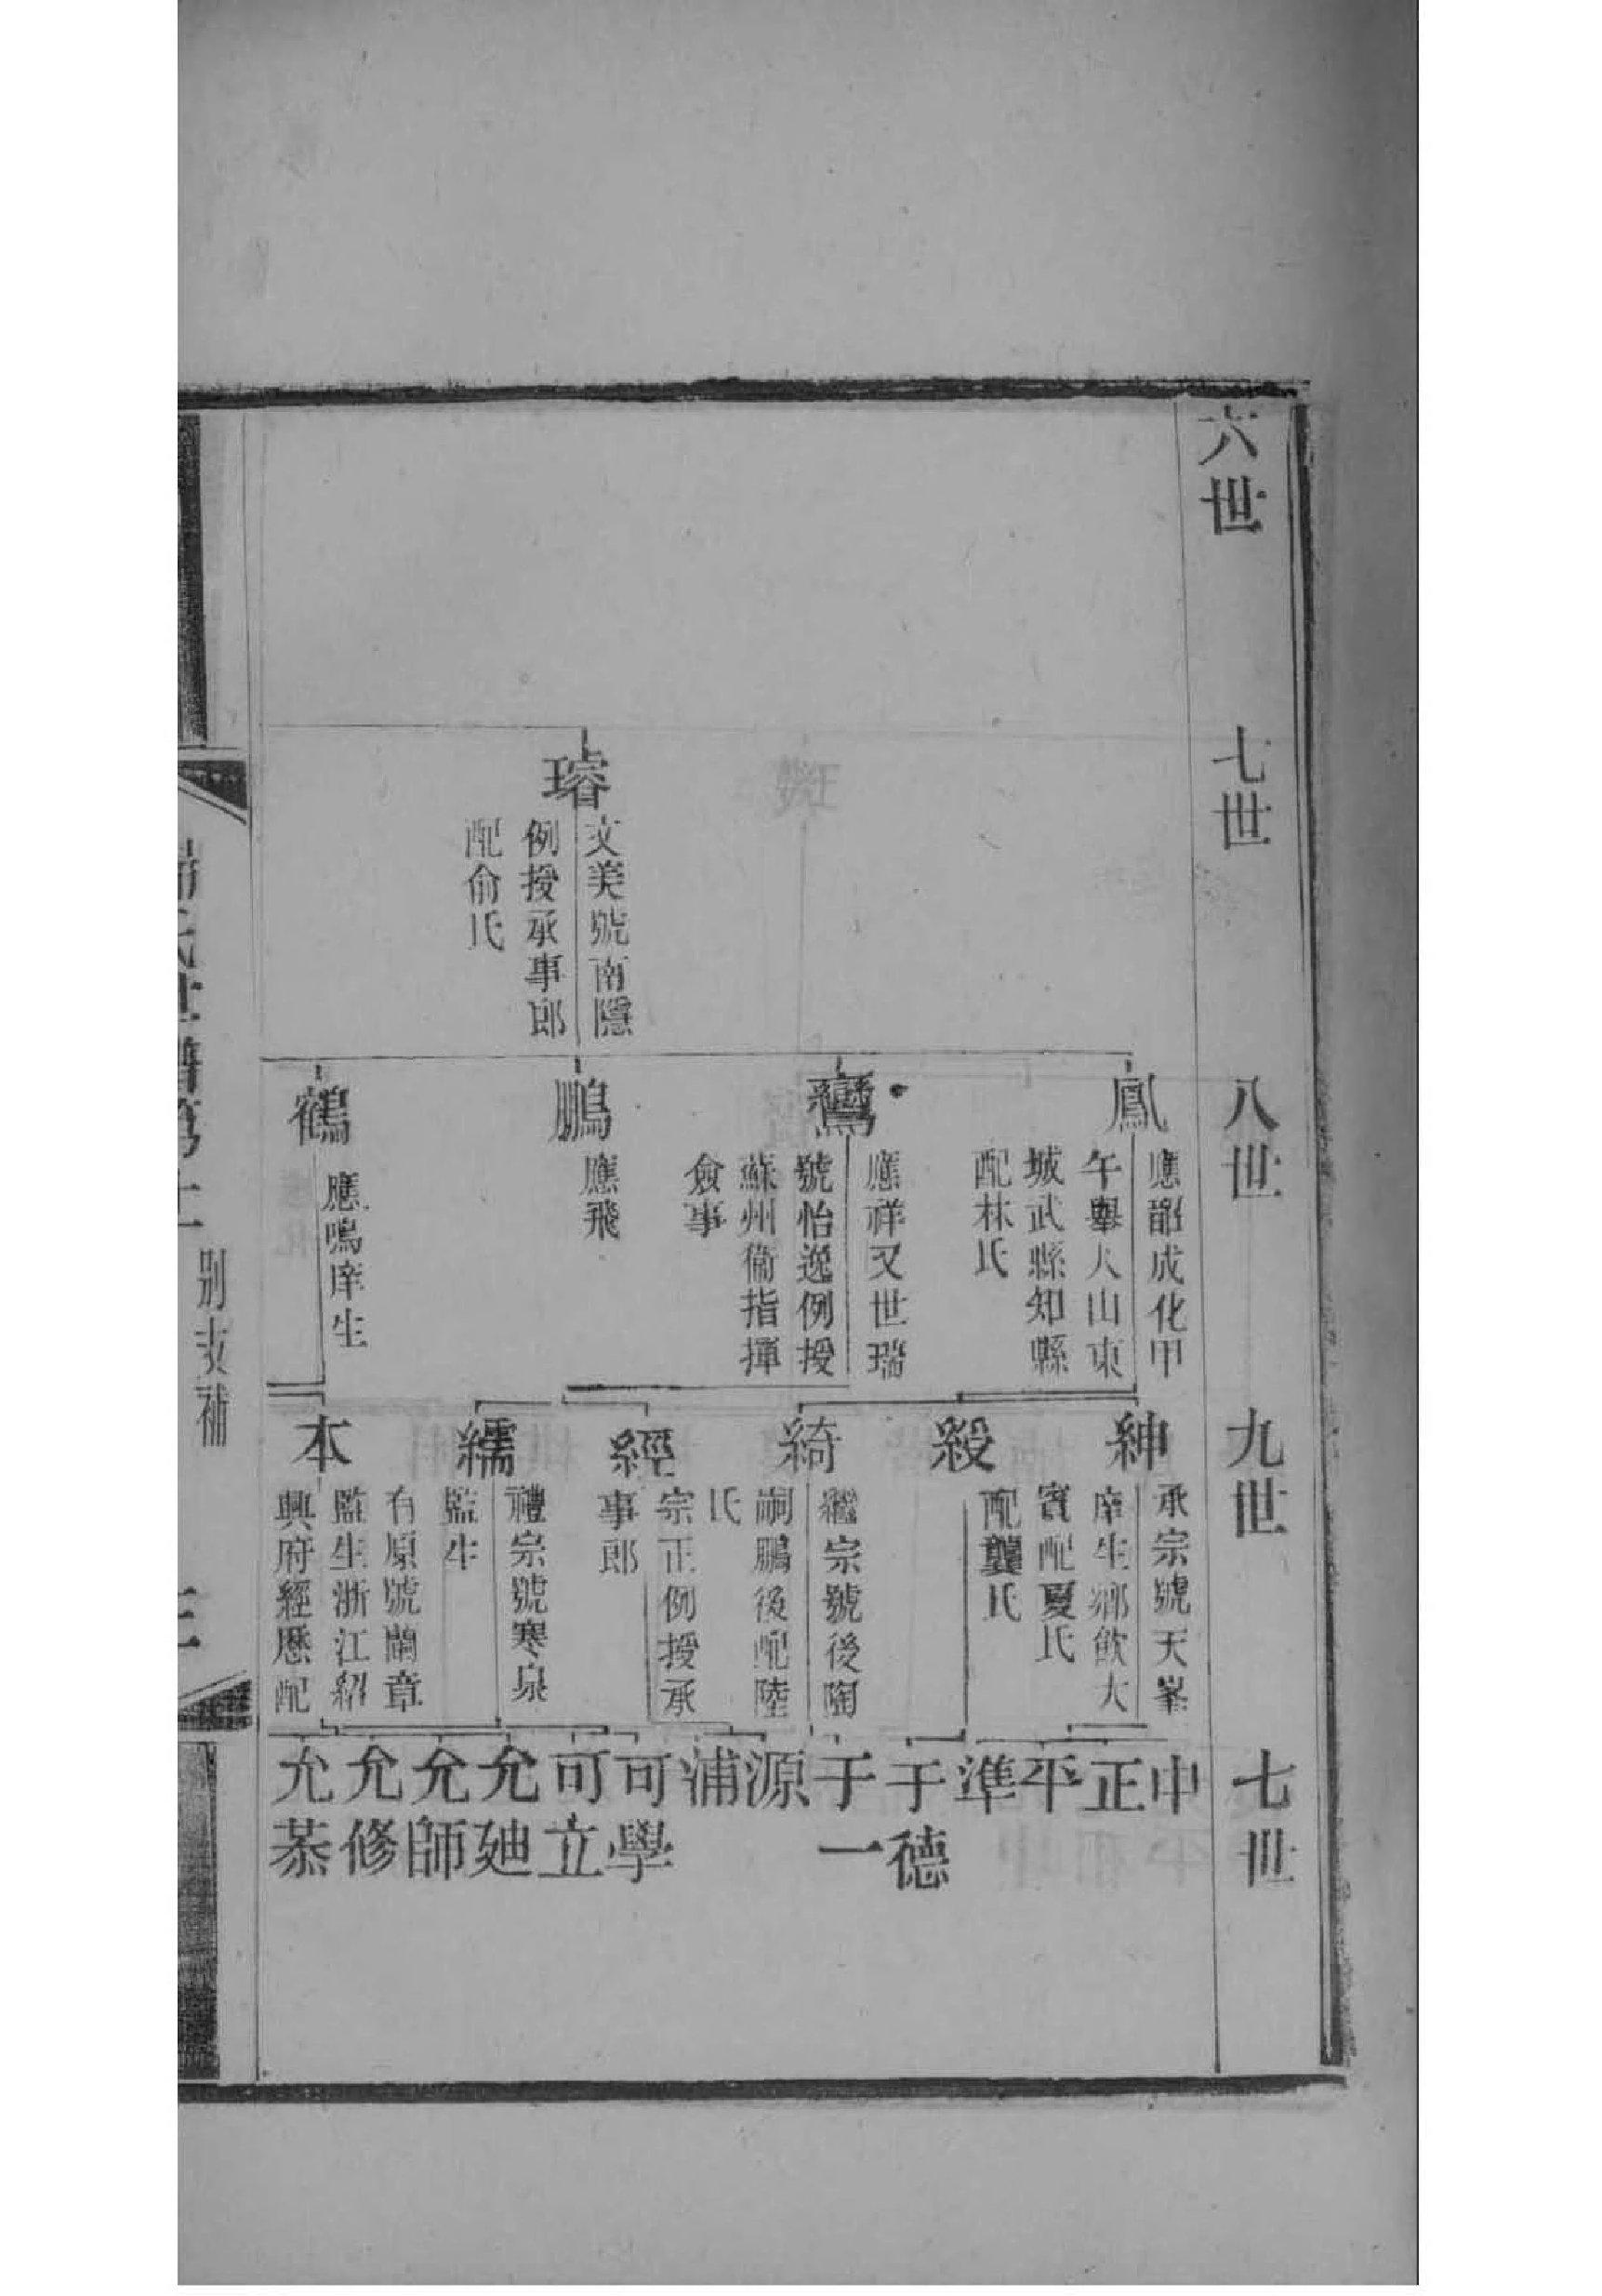 六世
七世
璿
文美號南隱
例授承事郎
配俞氏
八世
鳳
應韶成化甲
午舉人山東
城武縣知縣
配林氏
鸞
應祥又世瑞
號怡逸例授
蘇州衞指揮
僉事
鵬
應飛
鶴
應鳴庠生
九世
紳
承宗號天峯
庠生鄉飲大
賓配夏氏
縀
配龔氏
綺
繼宗號後陶
嗣鵬後配陸
氏
經
宗正例授承
事郎
繻
禮宗號寒泉
監生
本
有原號蘭章
監生浙江紹
興府經歷配
七世
中
正
平
準
于德
于一
源
浦
可學
可立
允廸
允師
允修
允恭
氏世譜第十
別支補